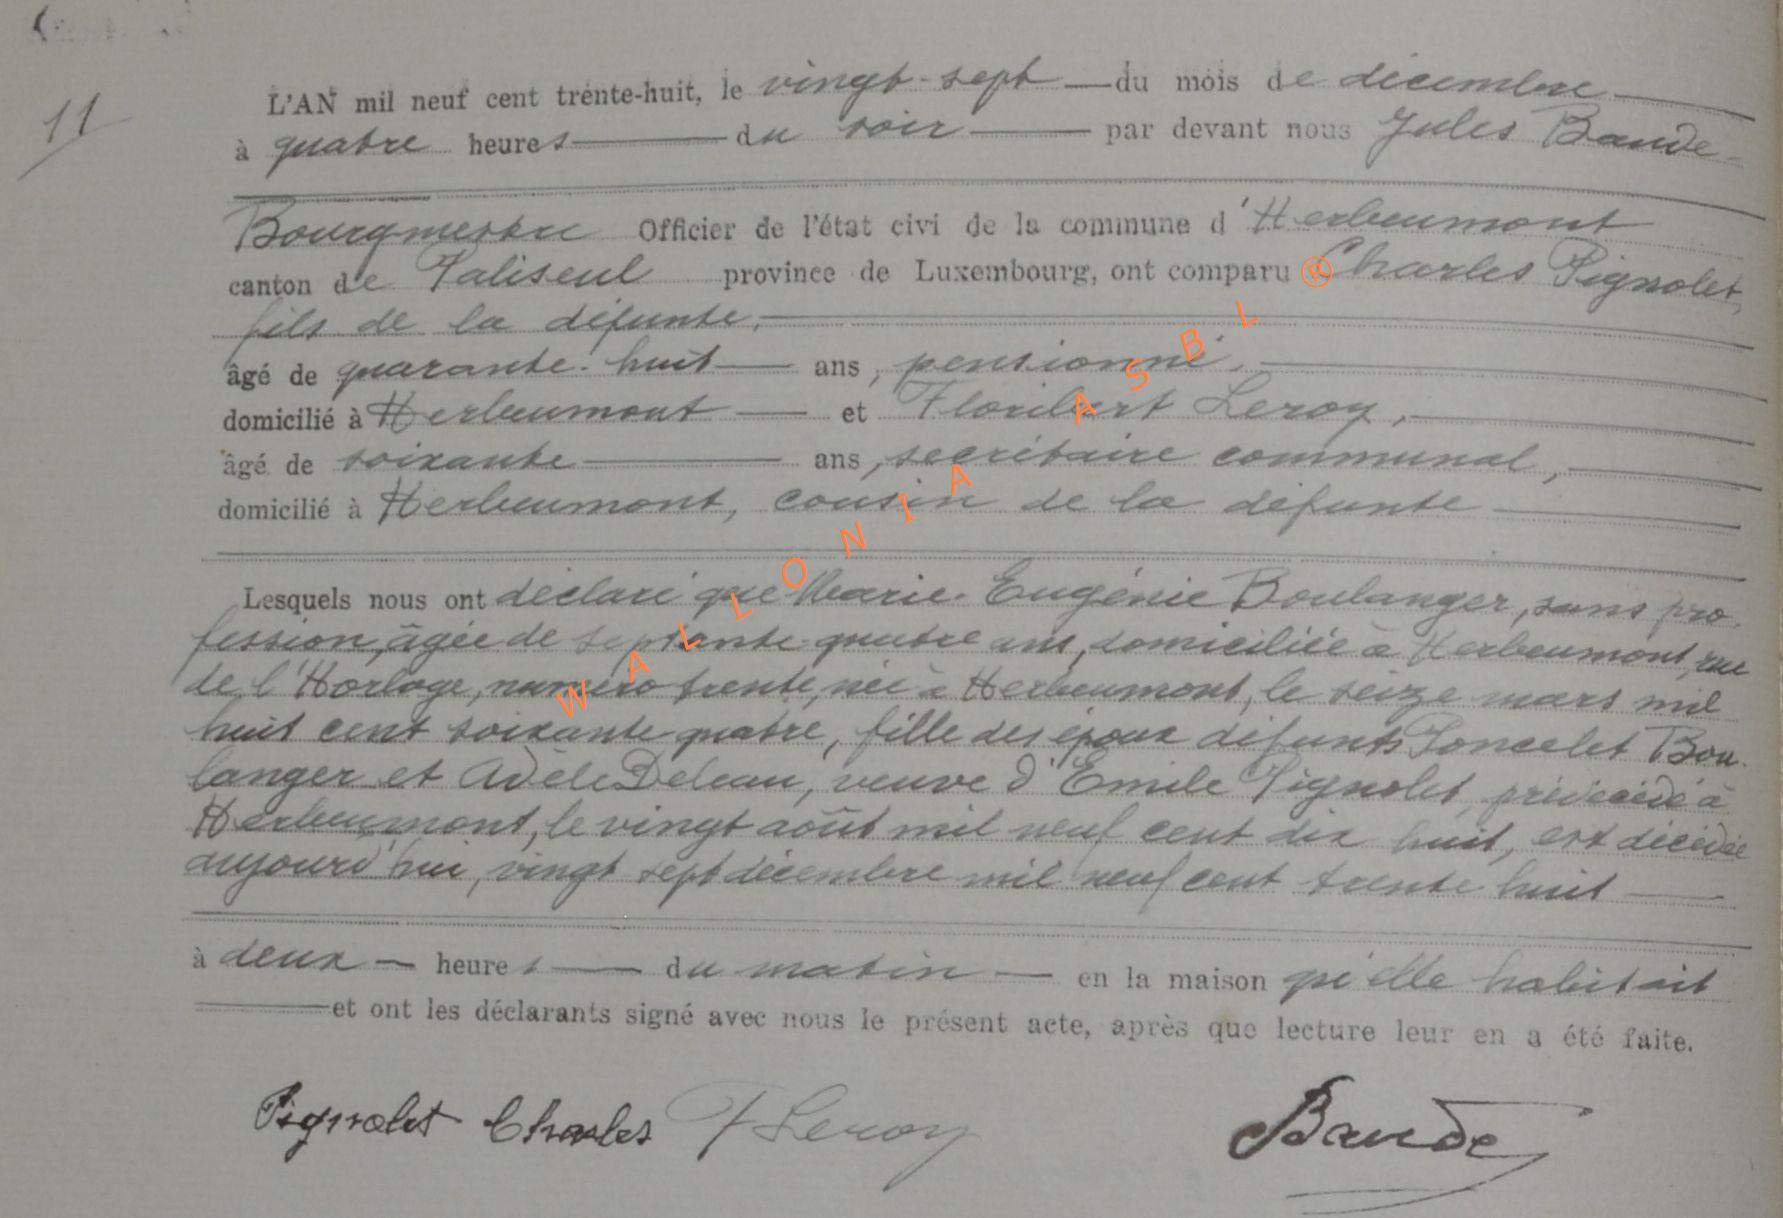 11
L'AN mil neuf cent trente-huit, le vingt-sept du mois de décembre
à quatre heures du soir par devant nous Jules Baude
Bourgmestre Officier de l'état civi de la commune d'Herbeumont
canton de Paliseul province de Luxembourg, ont comparu Charles Pignolet,
fils de la défunte,
âgé de quarante-huit ans, pensionné,
domicilié à Herbeumont et Floribert Leroy,
âgé de soixante ans, secrétaire communal,
domicilié à Herbeumont, cousin de la défunte
Lesquels nous ont déclaré que Marie-Eugénie Boulanger, sans pro-
fession, âgée de septante-quatre ans, domiciliée à Herbeumont, rue
de l'Horloge, numéro trente, née à Herbeumont, le seize mars mil
huit cent soixante-quatre, fille des époux défunts Poncelet Bou-
langer et Adèle Deleau, veuve d'Emile Pignolet, prédécédé à
Herbeumont, le vingt août mil neuf cent dix huit, est décédée
aujourd'hui, vingt sept décembre mil neuf cent trente huit
à deux heures du matin en la maison qu'elle habitait
et ont les déclarants signé avec nous le présent acte, après que lecture leur en a été faite.
Pignolet Charles F Leroy Baude
WALLONIA ASBL ®